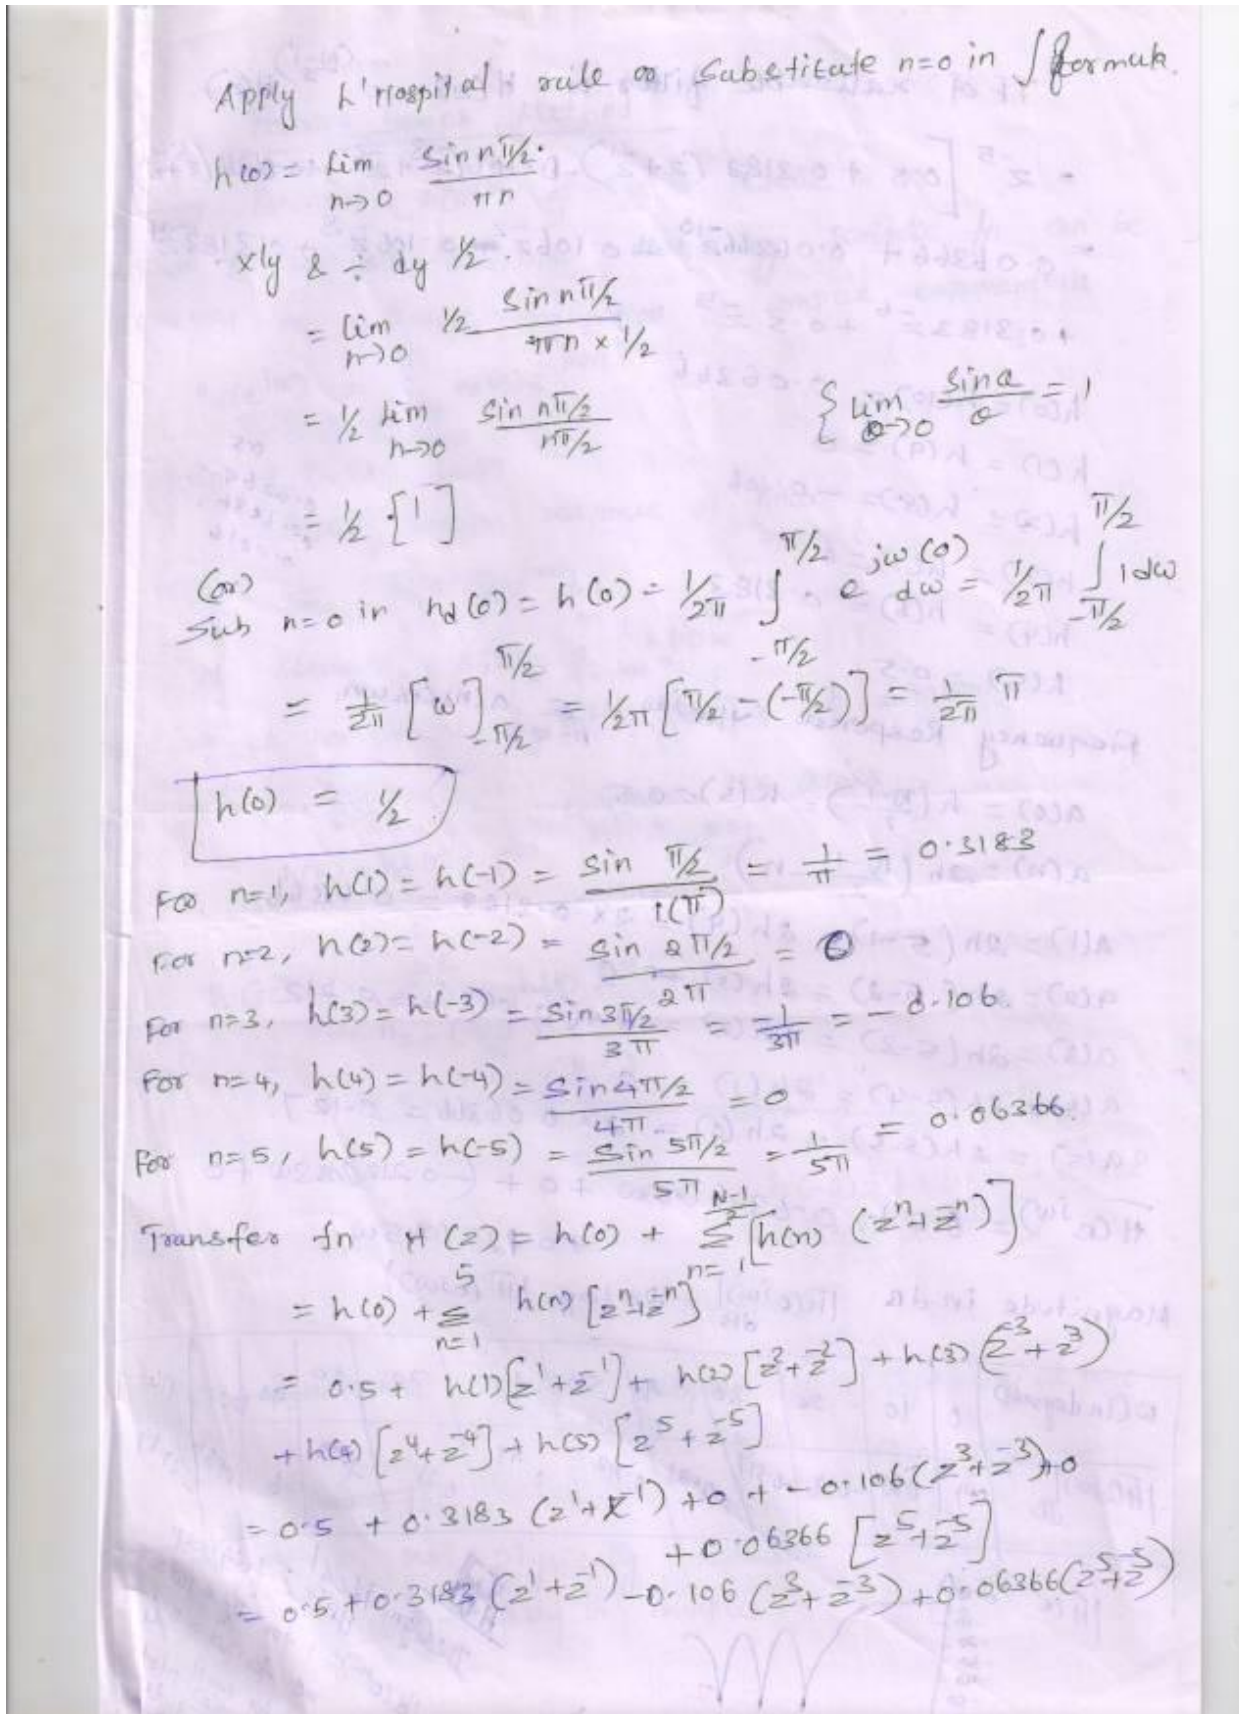 Apply L'Hospital rule or Substitute n=0 in ∫ formula.
h(0) = Lim n→0 Sin nπ/2 / πn
xly & ÷ dy ½.
= Lim n→0 ½ Sin nπ/2 / πn × ½
= ½ Lim n→0 Sin nπ/2 / nπ/2 { Lim θ→0 Sinθ / θ = 1
= ½ [1]
(or)
Sub n=0 in hd(0) = h(0) = 1/2π ∫ -π/2 π/2 e^jω(0) dω = 1/2π ∫ -π/2 π/2 1dω
= 1/2π [ω] -π/2 π/2 = 1/2π [π/2 - (-π/2)] = 1/2π π
h(0) = ½
For n=1, h(1) = h(-1) = Sin π/2 / 1(π) = 1/π = 0.3183
For n=2, h(2) = h(-2) = Sin 2π/2 / 2π = 0
For n=3, h(3) = h(-3) = Sin 3π/2 / 3π = -1/3π = -0.106.
For n=4, h(4) = h(-4) = Sin 4π/2 / 4π = 0
For n=5, h(5) = h(-5) = Sin 5π/2 / 5π = 1/5π = 0.06366.
Transfer fn H(z) = h(0) + Σ n=1 N-1/2 [h(n) (z^n + z^-n)]
= h(0) + Σ n=1 5 h(n) [z^n + z^-n]
= 0.5 + h(1) [z^1 + z^-1] + h(2) [z^2 + z^-2] + h(3) (z^3 + z^-3)
+ h(4) [z^4 + z^-4] + h(5) [z^5 + z^-5]
= 0.5 + 0.3183 (z^1 + z^-1) + 0 + -0.106 (z^3 + z^-3) + 0
+ 0.06366 [z^5 + z^-5]
= 0.5 + 0.3183 (z^1 + z^-1) - 0.106 (z^3 + z^-3) + 0.06366 (z^5 + z^-5)